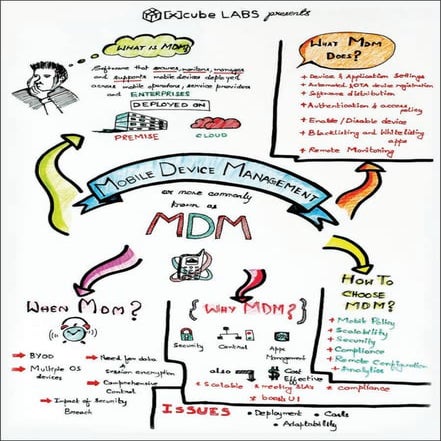 [x]cube LABS presents
WHAT IS MDM?
Software that secures, monitors, manages
and supports mobile devices deployed
across mobile operators, service providers
and ENTERPRISES
DEPLOYED ON
PREMISE
CLOUD
WHAT MDM
DOES?
+ Device & Application settings
+ Automated & OTA device registration
+ Software distribution
+ Authentication & access
policy
+ Enable / Disable device
+ Blacklisting and Whitelisting
apps
+ Remote Monitoring
MOBILE DEVICE MANAGEMENT
or more commonly
known as
MDM
WHEN MDM?
BYOD
Multiple OS
devices
Need for data
session encryption
Comprehensive
Control
Impact of Security
Breach
WHY MDM?
Security
Control
Apps
Management
also
$ Cost
Effective
* scalable * meeting SLAs * compliance
* boosts UI
HOW TO
CHOOSE
MDM?
+ Mobile Policy
+ Scalability
+ Security
+ Compliance
+ Remote Configuration
+ Analytics
ISSUES
• Deployment • Costs
• Adaptability